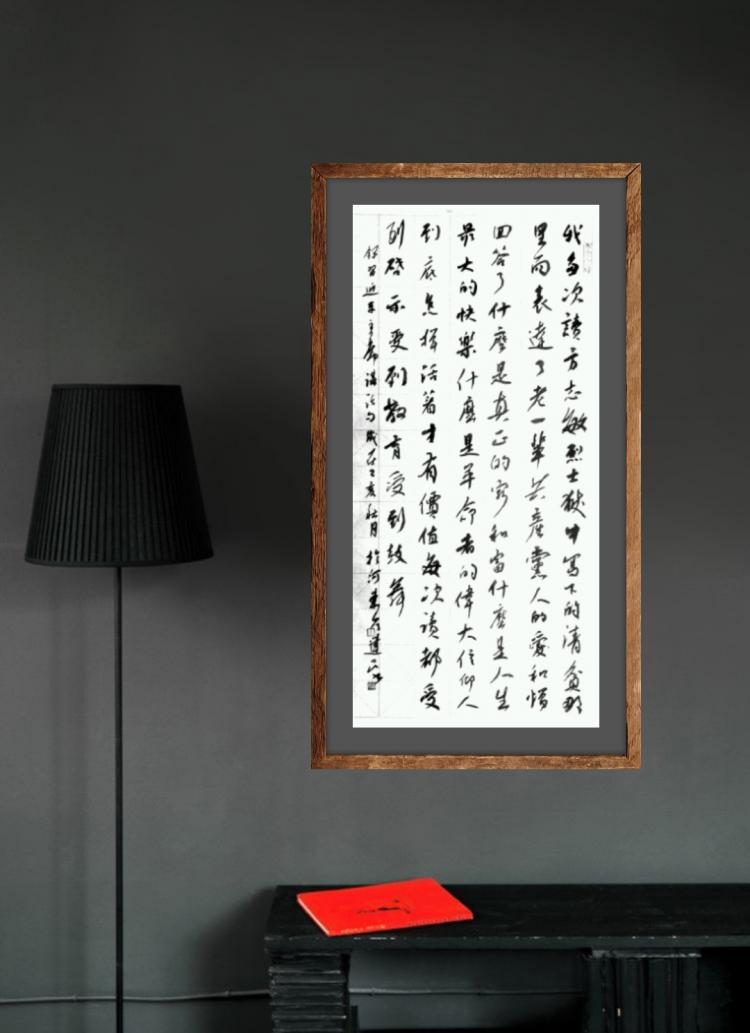 我多次讀方志敏烈士獄中寫下的清貧那
里面表達了老一輩共產黨人的愛和憎
回答了什麼是真正的窮和富什麼是人生
最大的快樂什麼是革命者的偉大信仰人
到底怎樣活着才有價值每次讀都受
到啓示受到教育受到鼓舞
錄習近平主席講話句歲在己亥秋月於河東